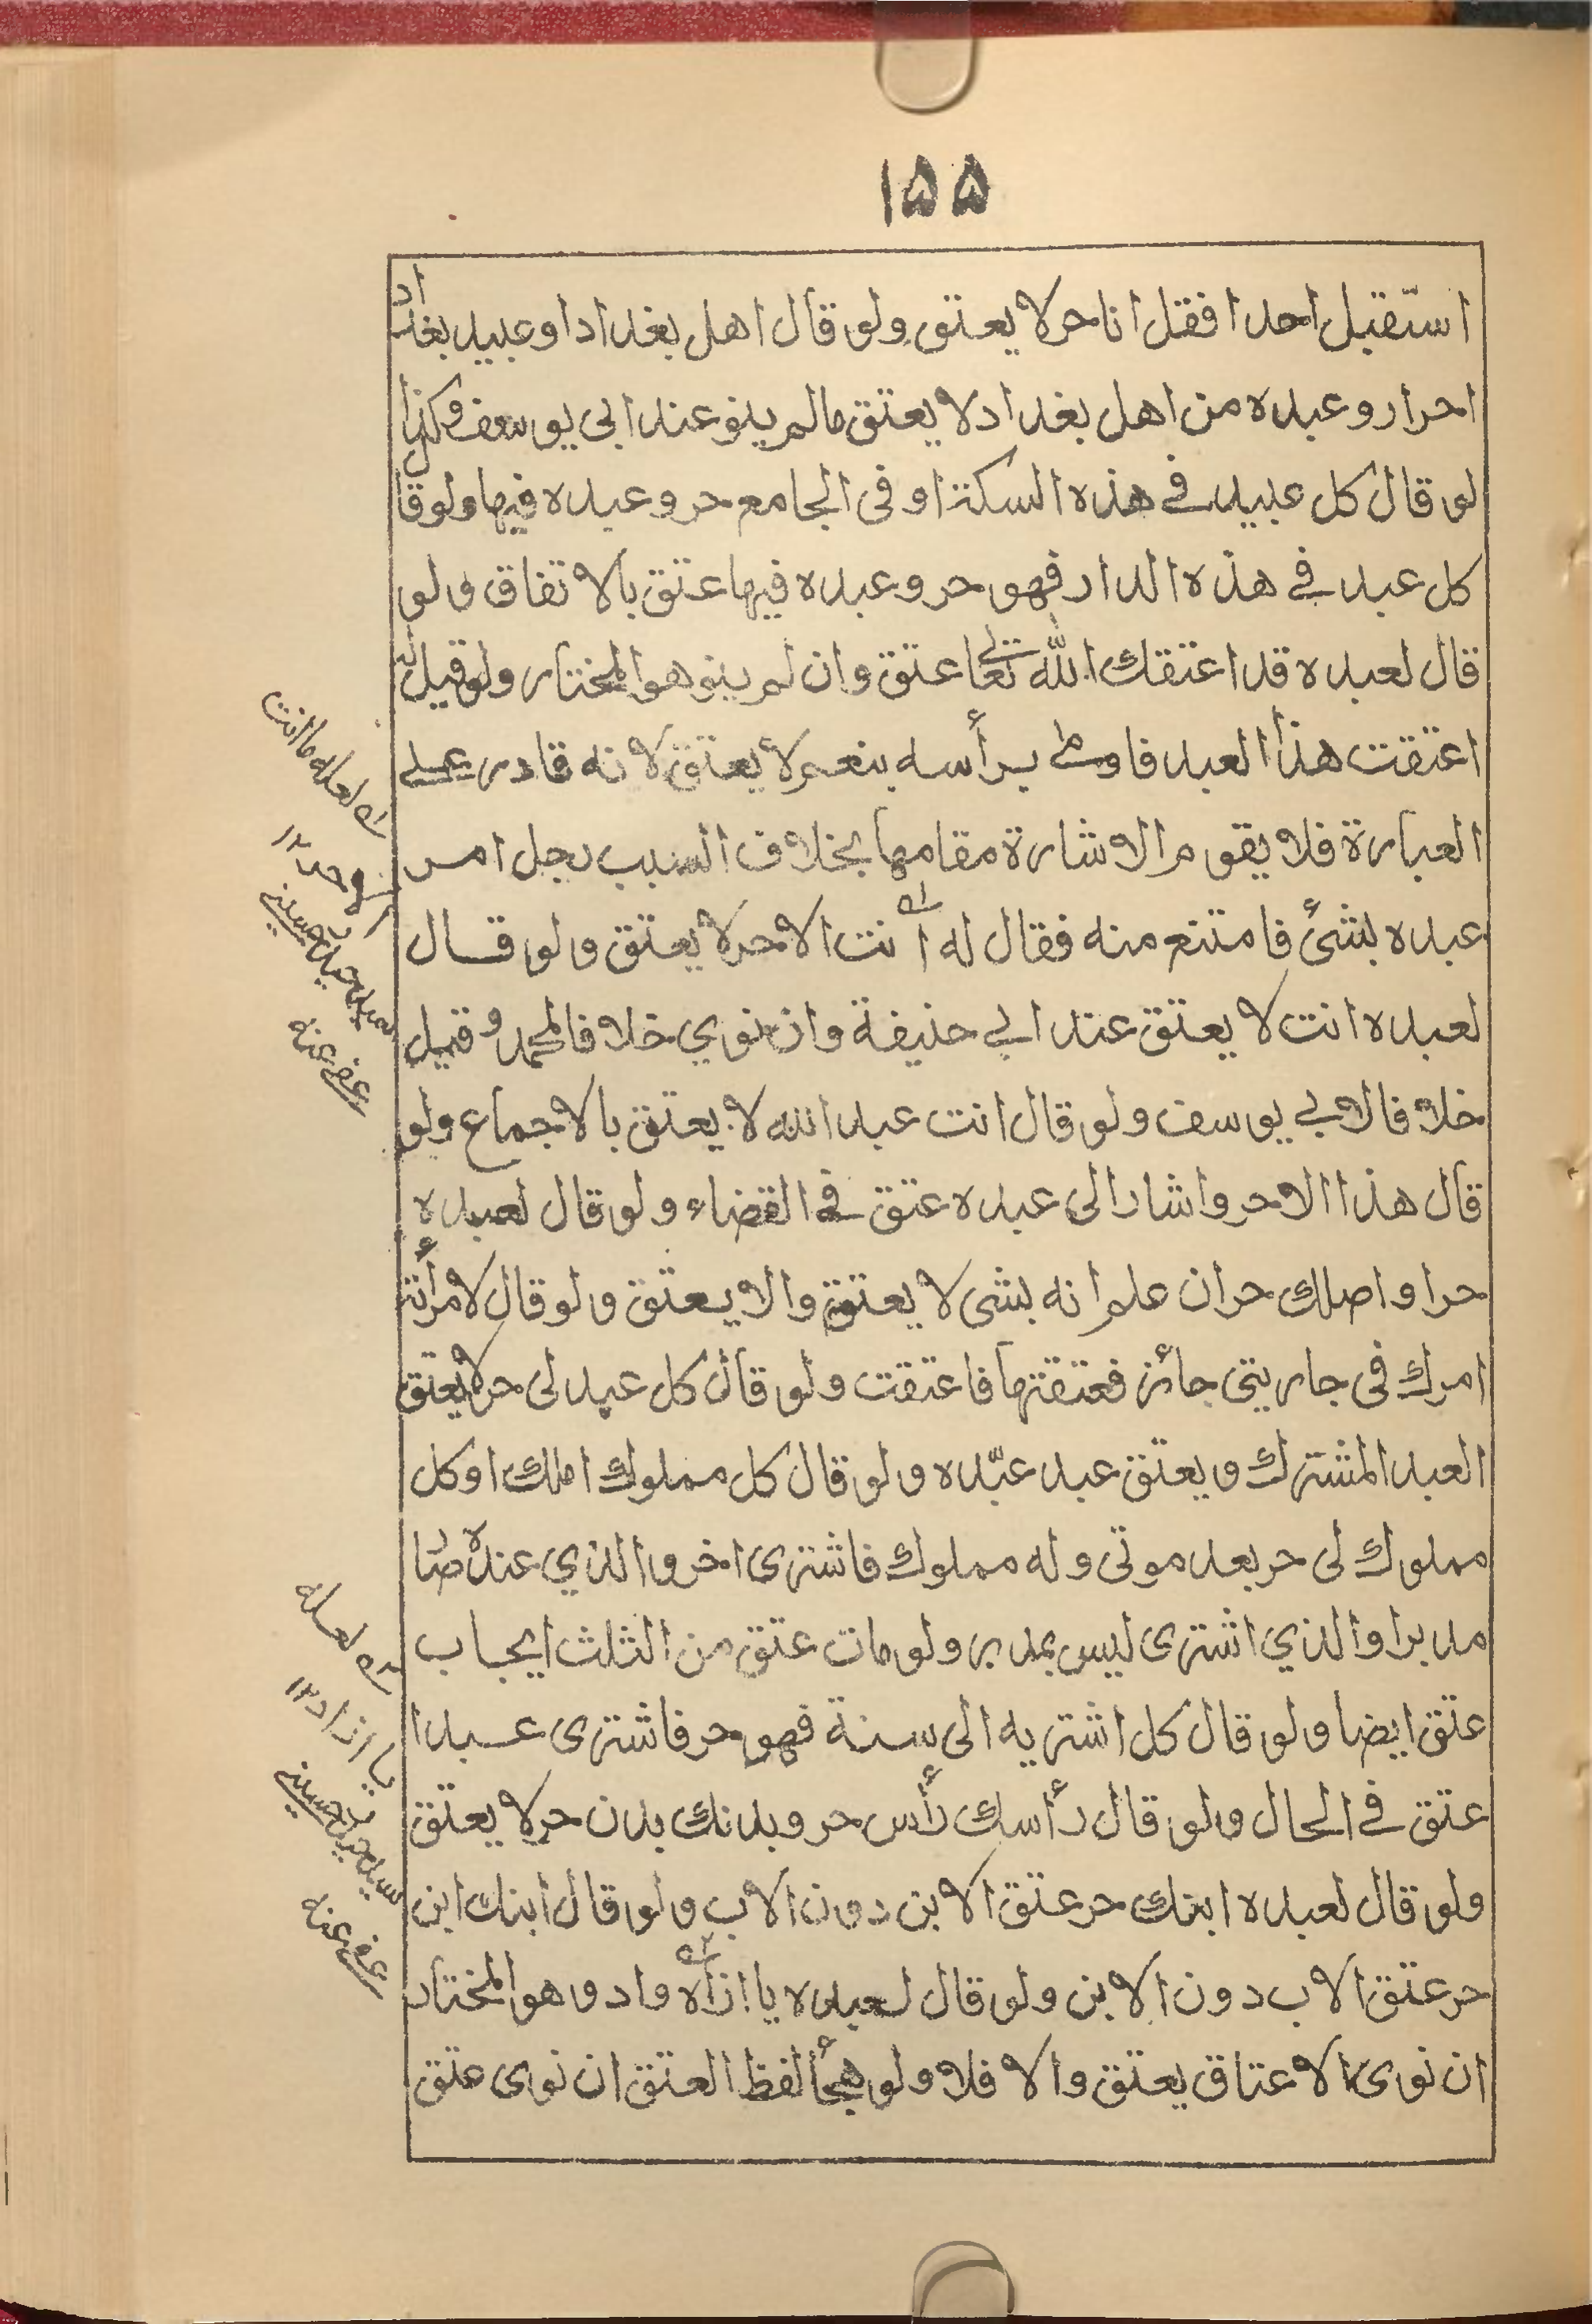 ١٥٥
استقبل احدا فقل انا حر لا يعتق ولو قال اهل بغداد او عبيد بغداد
احرار وعبده من اهل بغداد لا يعتق مالم ينو عند ابي يوسف وكذا
لو قال كل عبيد في هذه السكة او في الجامع حر وعبده فيها ولو قال
كل عبد في هذه الدار فهو حر وعبده فيها عتق بالاتفاق ولو
قال لعبده قد اعتقك الله تعالى عتق وان لم ينو هو المختار ولو قيل له
اعتقت هذا العبد فاومى برأسه بنعم لا يعتق لانه قادر على
العبارة فلا يقوم الاشارة مقامها بخلاف السبب رجل امر
عبده بشئ فامتنع منه فقال له أنت الا حر لا يعتق ولو قال
لعبده انت لا يعتق عند ابي حنيفة وان نوي خلافا لمحمد وقيل
خلافا لابي يوسف ولو قال انت عبد الله لا يعتق بالاجماع ولو
قال هذا الا حر واشار الى عبده عتق في القضاء ولو قال لعبده
حرا واصلك حر ان علم انه بشى لا يعتق والا يعتق ولو قال لامرأته
امرك في جاريتى جائز فعتقتها فاعتقت ولو قال كل عبد لى حر لا يعتق
العبد المشترك ويعتق عبد عبّده ولو قال كل مملوك املك او كل
مملوك لى حر بعد موتى وله مملوك فاشترى اخر والذي عنده صار
مدبرا والذي اشترى ليس بمدبر ولو مات عتق من الثلث ايجاب
عتق ايضا ولو قال كل اشتريه الى سنة فهو حر فاشترى عبدا
عتق في الحال ولو قال رأسك رأس حر وبدنك بدن حر لا يعتق
ولو قال لعبده ابنك حر عتق الابن دون الاب ولو قال ابنك ابن
حر عتق الاب دون الابن ولو قال لعبده يا ازاه واد وهو المختار
ان نوى الاعتاق يعتق والا فلا ولو هجأ لفظ العتق ان نوى عتق
له لعله ما انت
الا حر ١٢
عفى عنه
له لعله
يا ازاد ١٢
عفى عنه